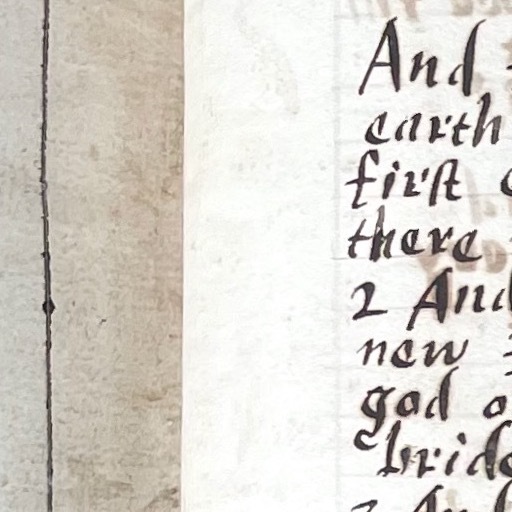 And
earth
first
there
2 And
new
god
bride